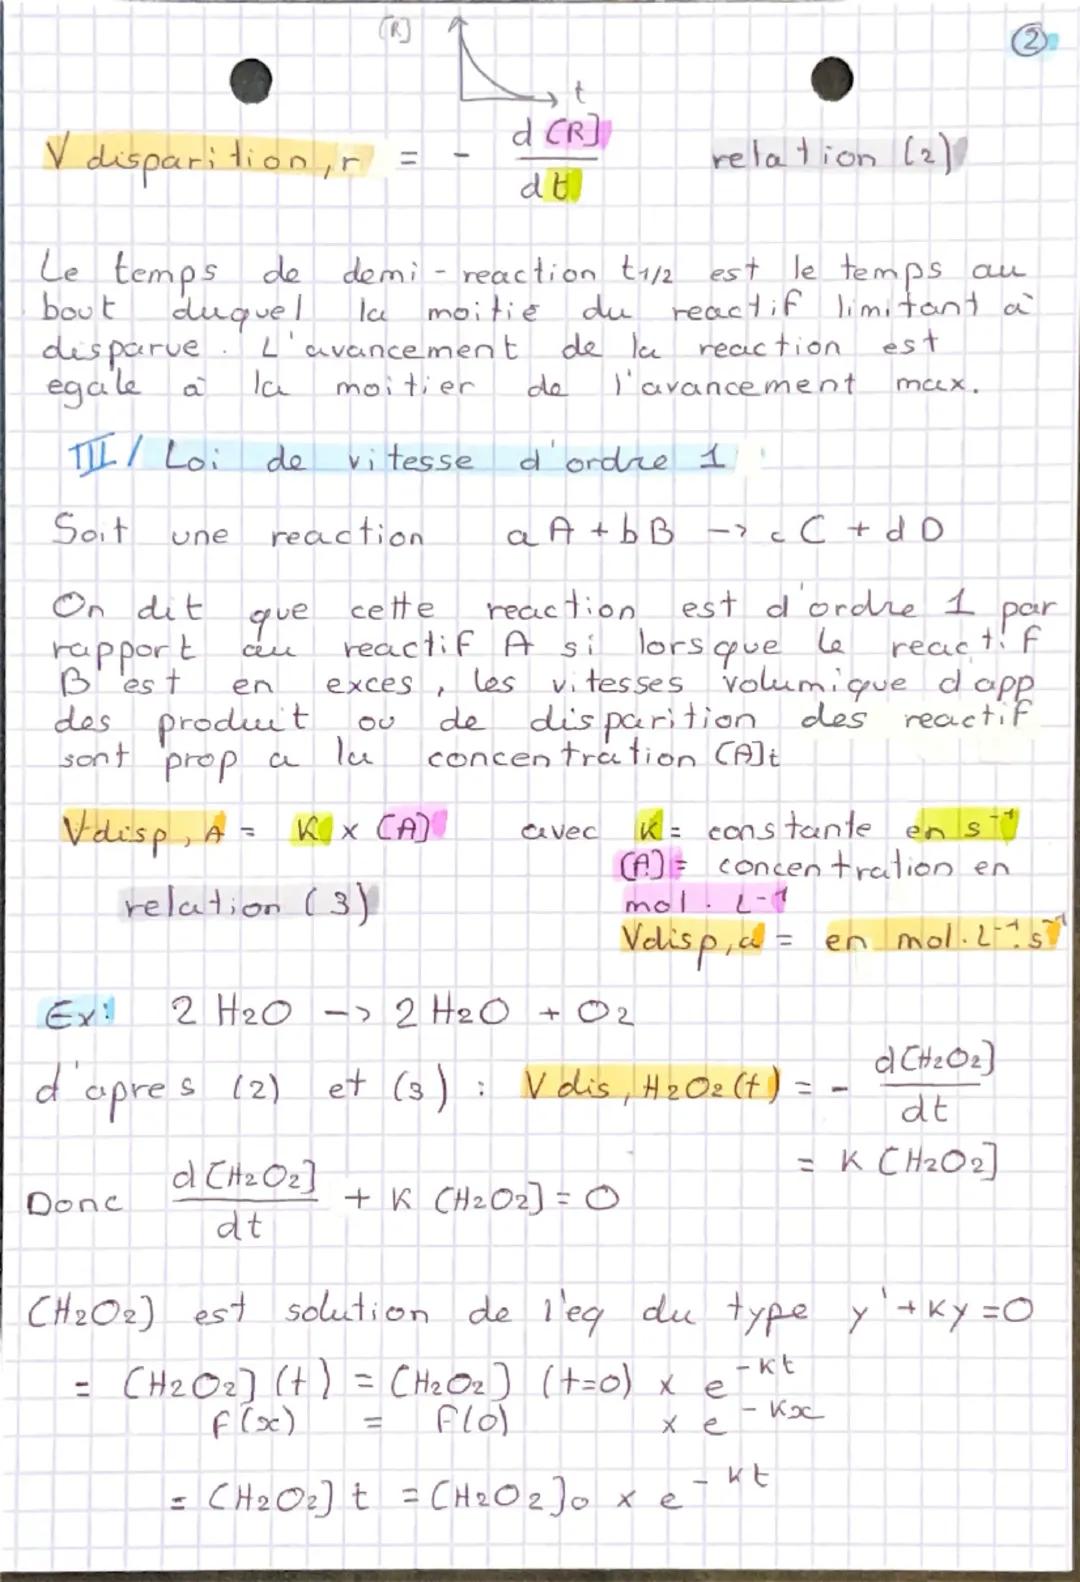 [R]
②
t
V disparition, r = - d[R]/dt relation (2)
Le temps de demi-reaction t1/2 est le temps au
bout duquel la moitie du reactif limitant à
disparue. L'avancement de la reaction est
egale à la moitier de l'avancement max.
III/ Loi de vitesse d'ordre 1
Soit une reaction aA + bB -> cC + dD
On dit que cette reaction est d'ordre 1 par
rapport au reactif A si lorsque le reactif
B est en exces, les vitesses volumique d'app
des produit ou de disparition des reactif
sont prop a la concentration [A]t
Vdisp, A = K x [A] avec K = constante en s⁻¹
[A] = concentration en
relation (3) mol. L-1
Vdisp,a = en mol.L⁻¹.s⁻¹
Ex: 2 H2O -> 2 H2O + O2
d'apres (2) et (3) : V dis, H2O2(t) = - d[H2O2]/dt
= K [H2O2]
Donc d[H2O2]/dt + K [H2O2] = 0
[H2O2] est solution de l'eq du type y'+Ky=0
= [H2O2] (t) = [H2O2] (t=0) x e^-Kt
f(x) = f(0) x e^-Kx
= [H2O2] t = [H2O2]o x e^-Kt